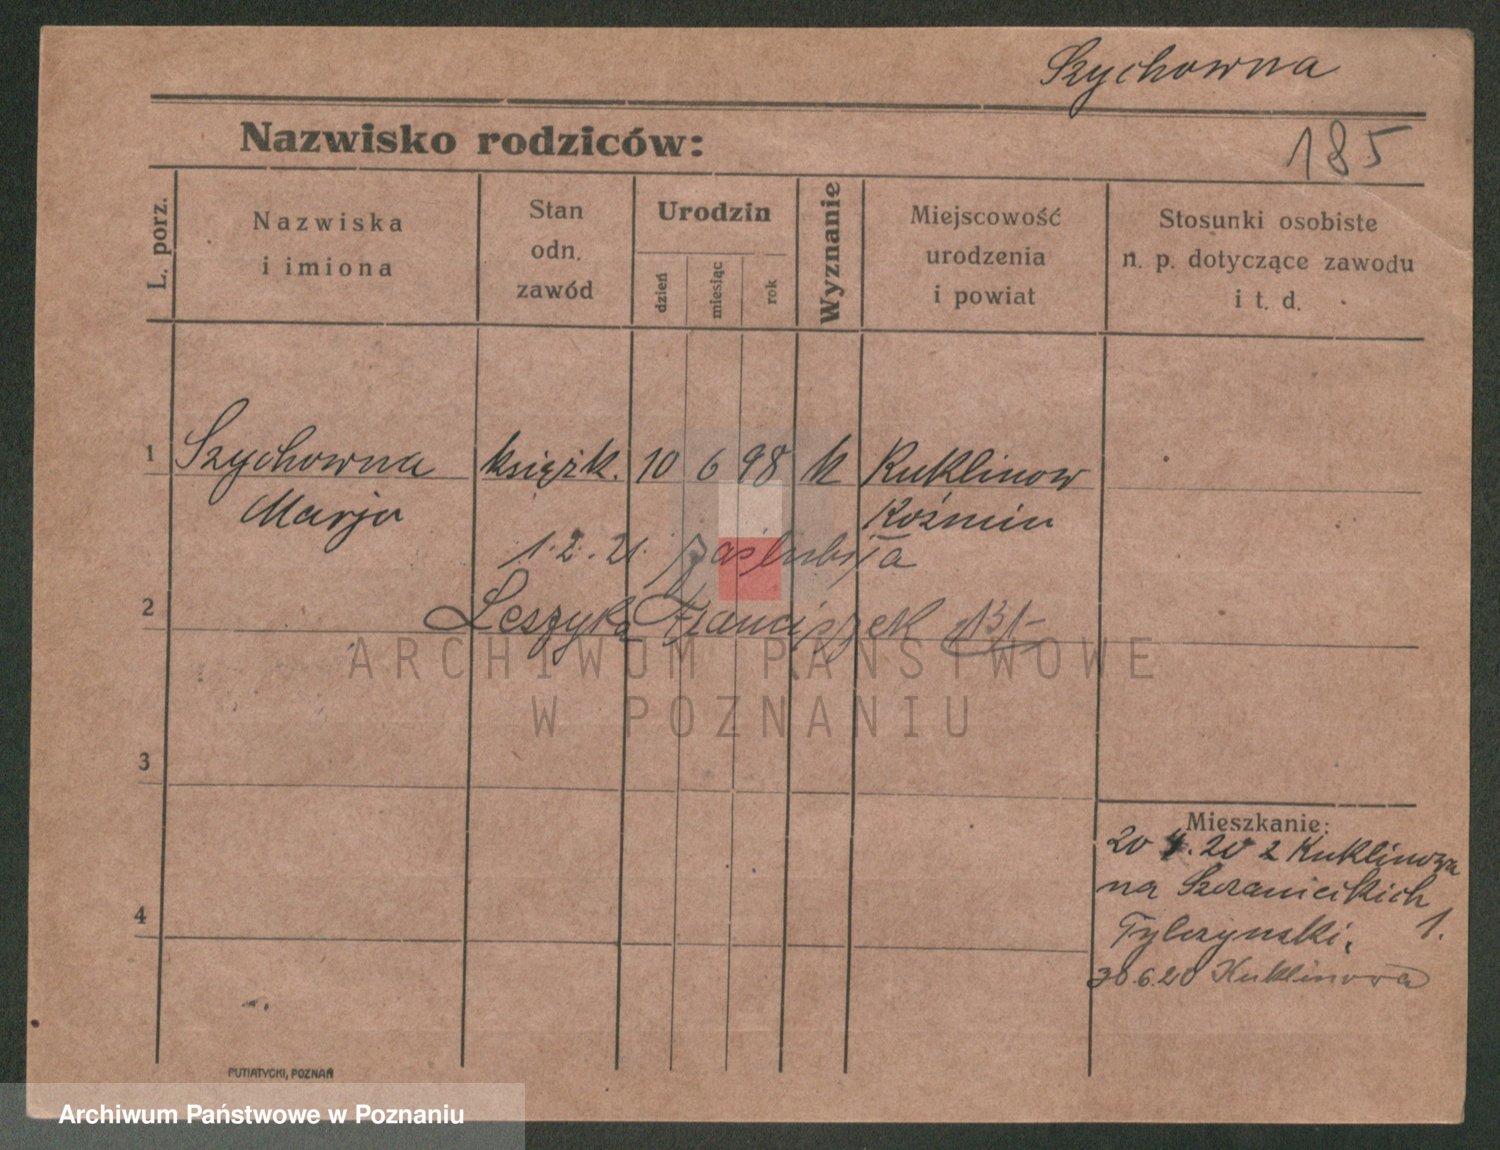 Szychowna
Nazwisko rodziców:
185
L. porz.
Nazwiska
i imiona
Stan
odn.
zawód
Urodzin
dzień
miesiąc
rok
Wyznanie
Miejscowość
urodzenia
i powiat
Stosunki osobiste
n. p. dotyczące zawodu
i t. d.
1 Szychowna książk. 10 6 98 k Kuklinow
Marja Koźmin
1.2.21. zaślubiła
2 Leszyka Franciszek
ARCHIWUM PAŃSTWOWE
W POZNANIU
3
Mieszkanie:
20 4.20 z Kuklinowa
na
4
Tylczynski. 1.
30.6.20 Kuklinowa
PUTIATYCKI, POZNAŃ
Archiwum Państwowe w Poznaniu